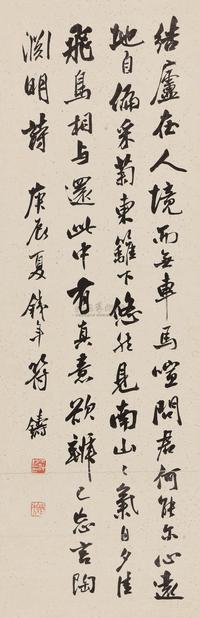 結廬在人境而無車馬喧問君何能尔心遠
地自偏采菊東籬下悠然見南山々氣日夕佳
飛鳥相与還此中有真意欲辨已忘言陶
渊明詩 庚辰夏銕年符鑄